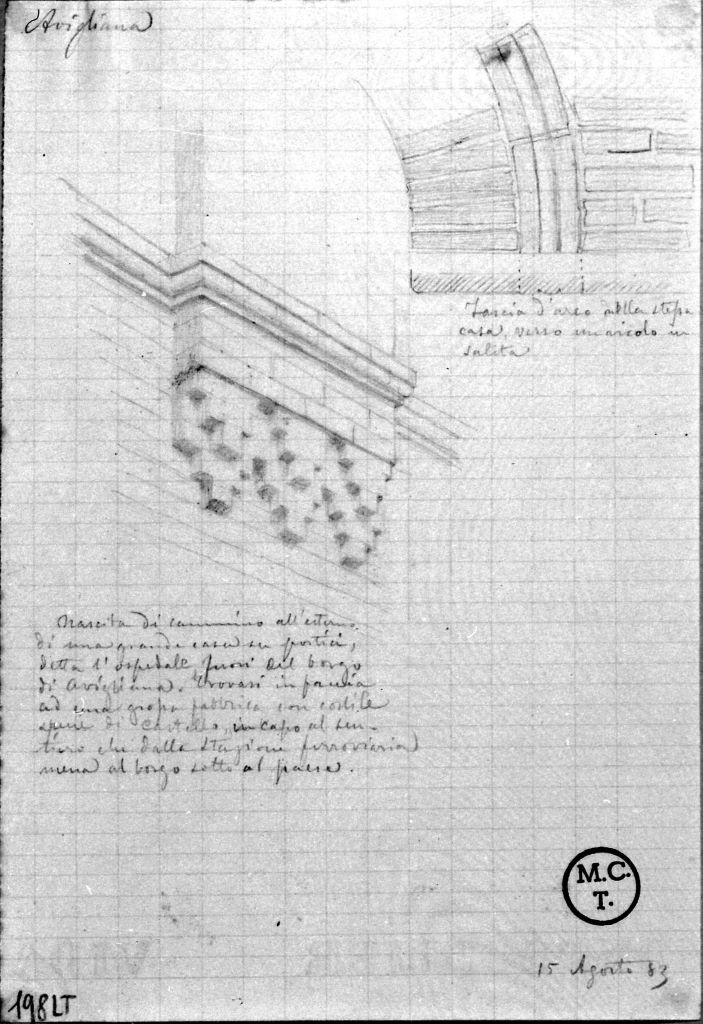 Avigliana
Fascia d'arco della stessa
casa, verso un vicolo in
salita
Nascita di cammino all'esterno
di una grande casa su portici,
detta l'ospedale fuori del borgo
di Avigliana. Trovasi in faccia
ad una grossa fabbrica con cortile
specie di Castello, in capo al sen-
tiero che dalla Stazione ferroviaria
mena al borgo sotto al paese.
M.C.
T.
15 Agosto 83
198LT